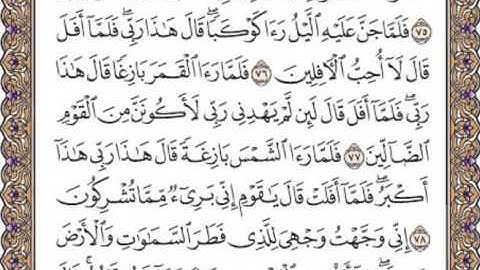 ۝٧٥ فَلَمَّا جَنَّ عَلَيْهِ ٱلَّيْلُ رَءَا كَوْكَبًا ۖ قَالَ هَٰذَا رَبِّى ۖ فَلَمَّآ أَفَلَ
قَالَ لَآ أُحِبُّ ٱلْءَافِلِينَ ۝٧٦ فَلَمَّا رَءَا ٱلْقَمَرَ بَازِغًا قَالَ هَٰذَا
رَبِّى ۖ فَلَمَّآ أَفَلَ قَالَ لَئِن لَّمْ يَهْدِنِى رَبِّى لَأَكُونَنَّ مِنَ ٱلْقَوْمِ
ٱلضَّآلِّينَ ۝٧٧ فَلَمَّا رَءَا ٱلشَّمْسَ بَازِغَةً قَالَ هَٰذَا رَبِّى هَٰذَآ
أَكْبَرُ ۖ فَلَمَّآ أَفَلَتْ قَالَ يَٰقَوْمِ إِنِّى بَرِىٓءٌ مِّمَّا تُشْرِكُونَ
۝٧٨ إِنِّى وَجَّهْتُ وَجْهِىَ لِلَّذِى فَطَرَ ٱلسَّمَٰوَٰتِ وَٱلْأَرْضَ